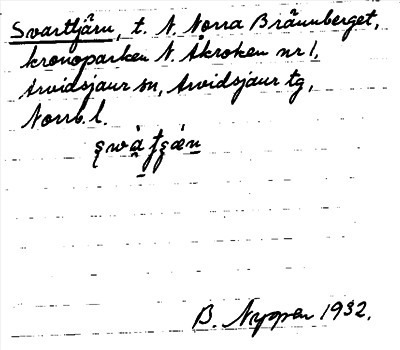 Svarttjärn, t. N. Norra Brännberget,
kronoparken N. Åkroken nr 1,
Arvidsjaur sn, Arvidsjaur tg,
Norrb. l.
B. Nyman 1932.